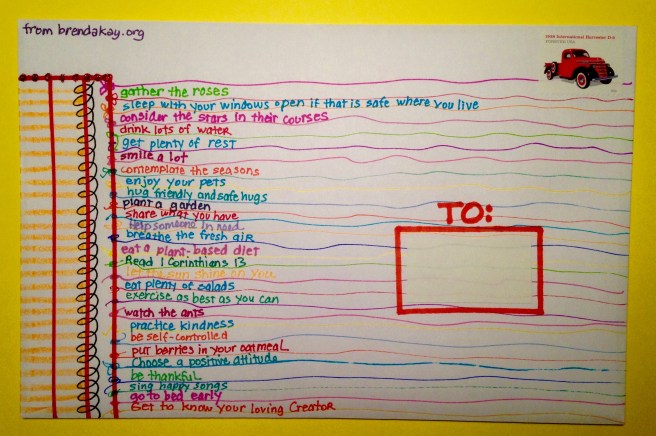 from brendakay.org
1938 International Harvester D-2
gather the roses
sleep with your windows open if that is safe where you live
consider the stars in their courses
drink lots of water
get plenty of rest
smile a lot
contemplate the seasons
enjoy your pets
hug friendly and safe hugs
plant a garden
share what you have
help someone in need
breathe the fresh air
eat a plant-based diet
Read 1 Corinthians 13
let the sun shine on you
eat plenty of salads
exercise as best as you can
watch the ants
practice kindness
be self-controlled
put berries in your oatmeal
Choose a positive attitude
be thankful
sing happy songs
go to bed early
Get to know your loving Creator
TO: